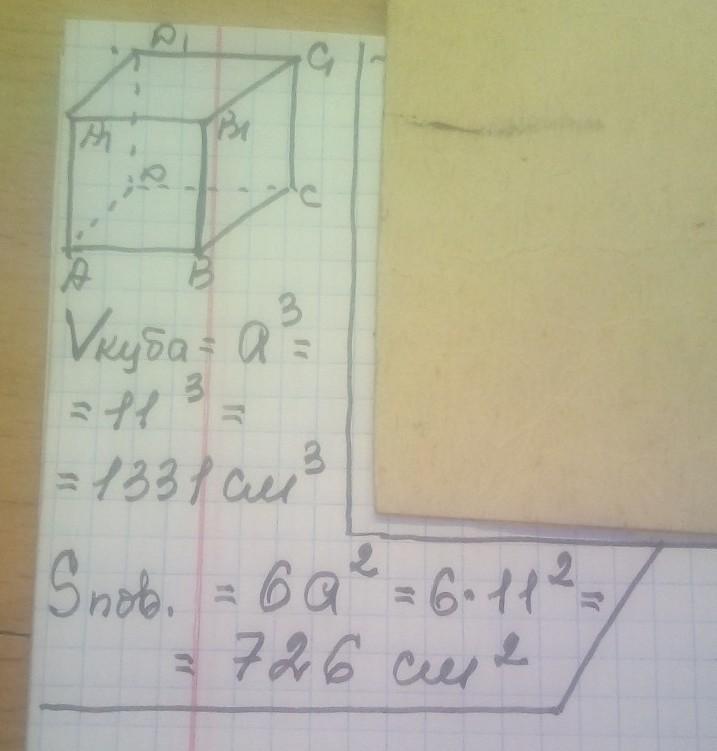 D₁ C₁
A₁ B₁
D C
A B
Vкуба = a³ =
= 11³ =
= 1331 см³
Sпов. = 6a² = 6·11² =
= 726 см²